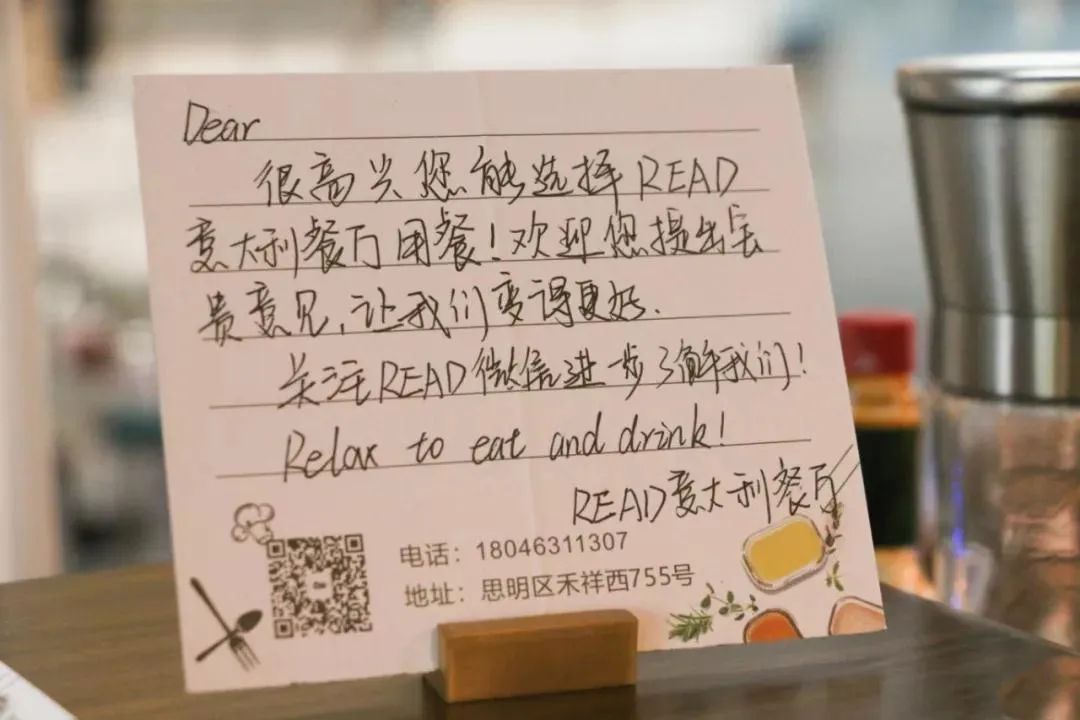 Dear
很高兴您能选择READ
意大利餐厅用餐！欢迎您提出宝
贵意见，让我们变得更好.
关注READ微信进一步了解我们！
Relax to eat and drink!
READ意大利餐厅
电话：18046311307
地址：思明区禾祥西755号